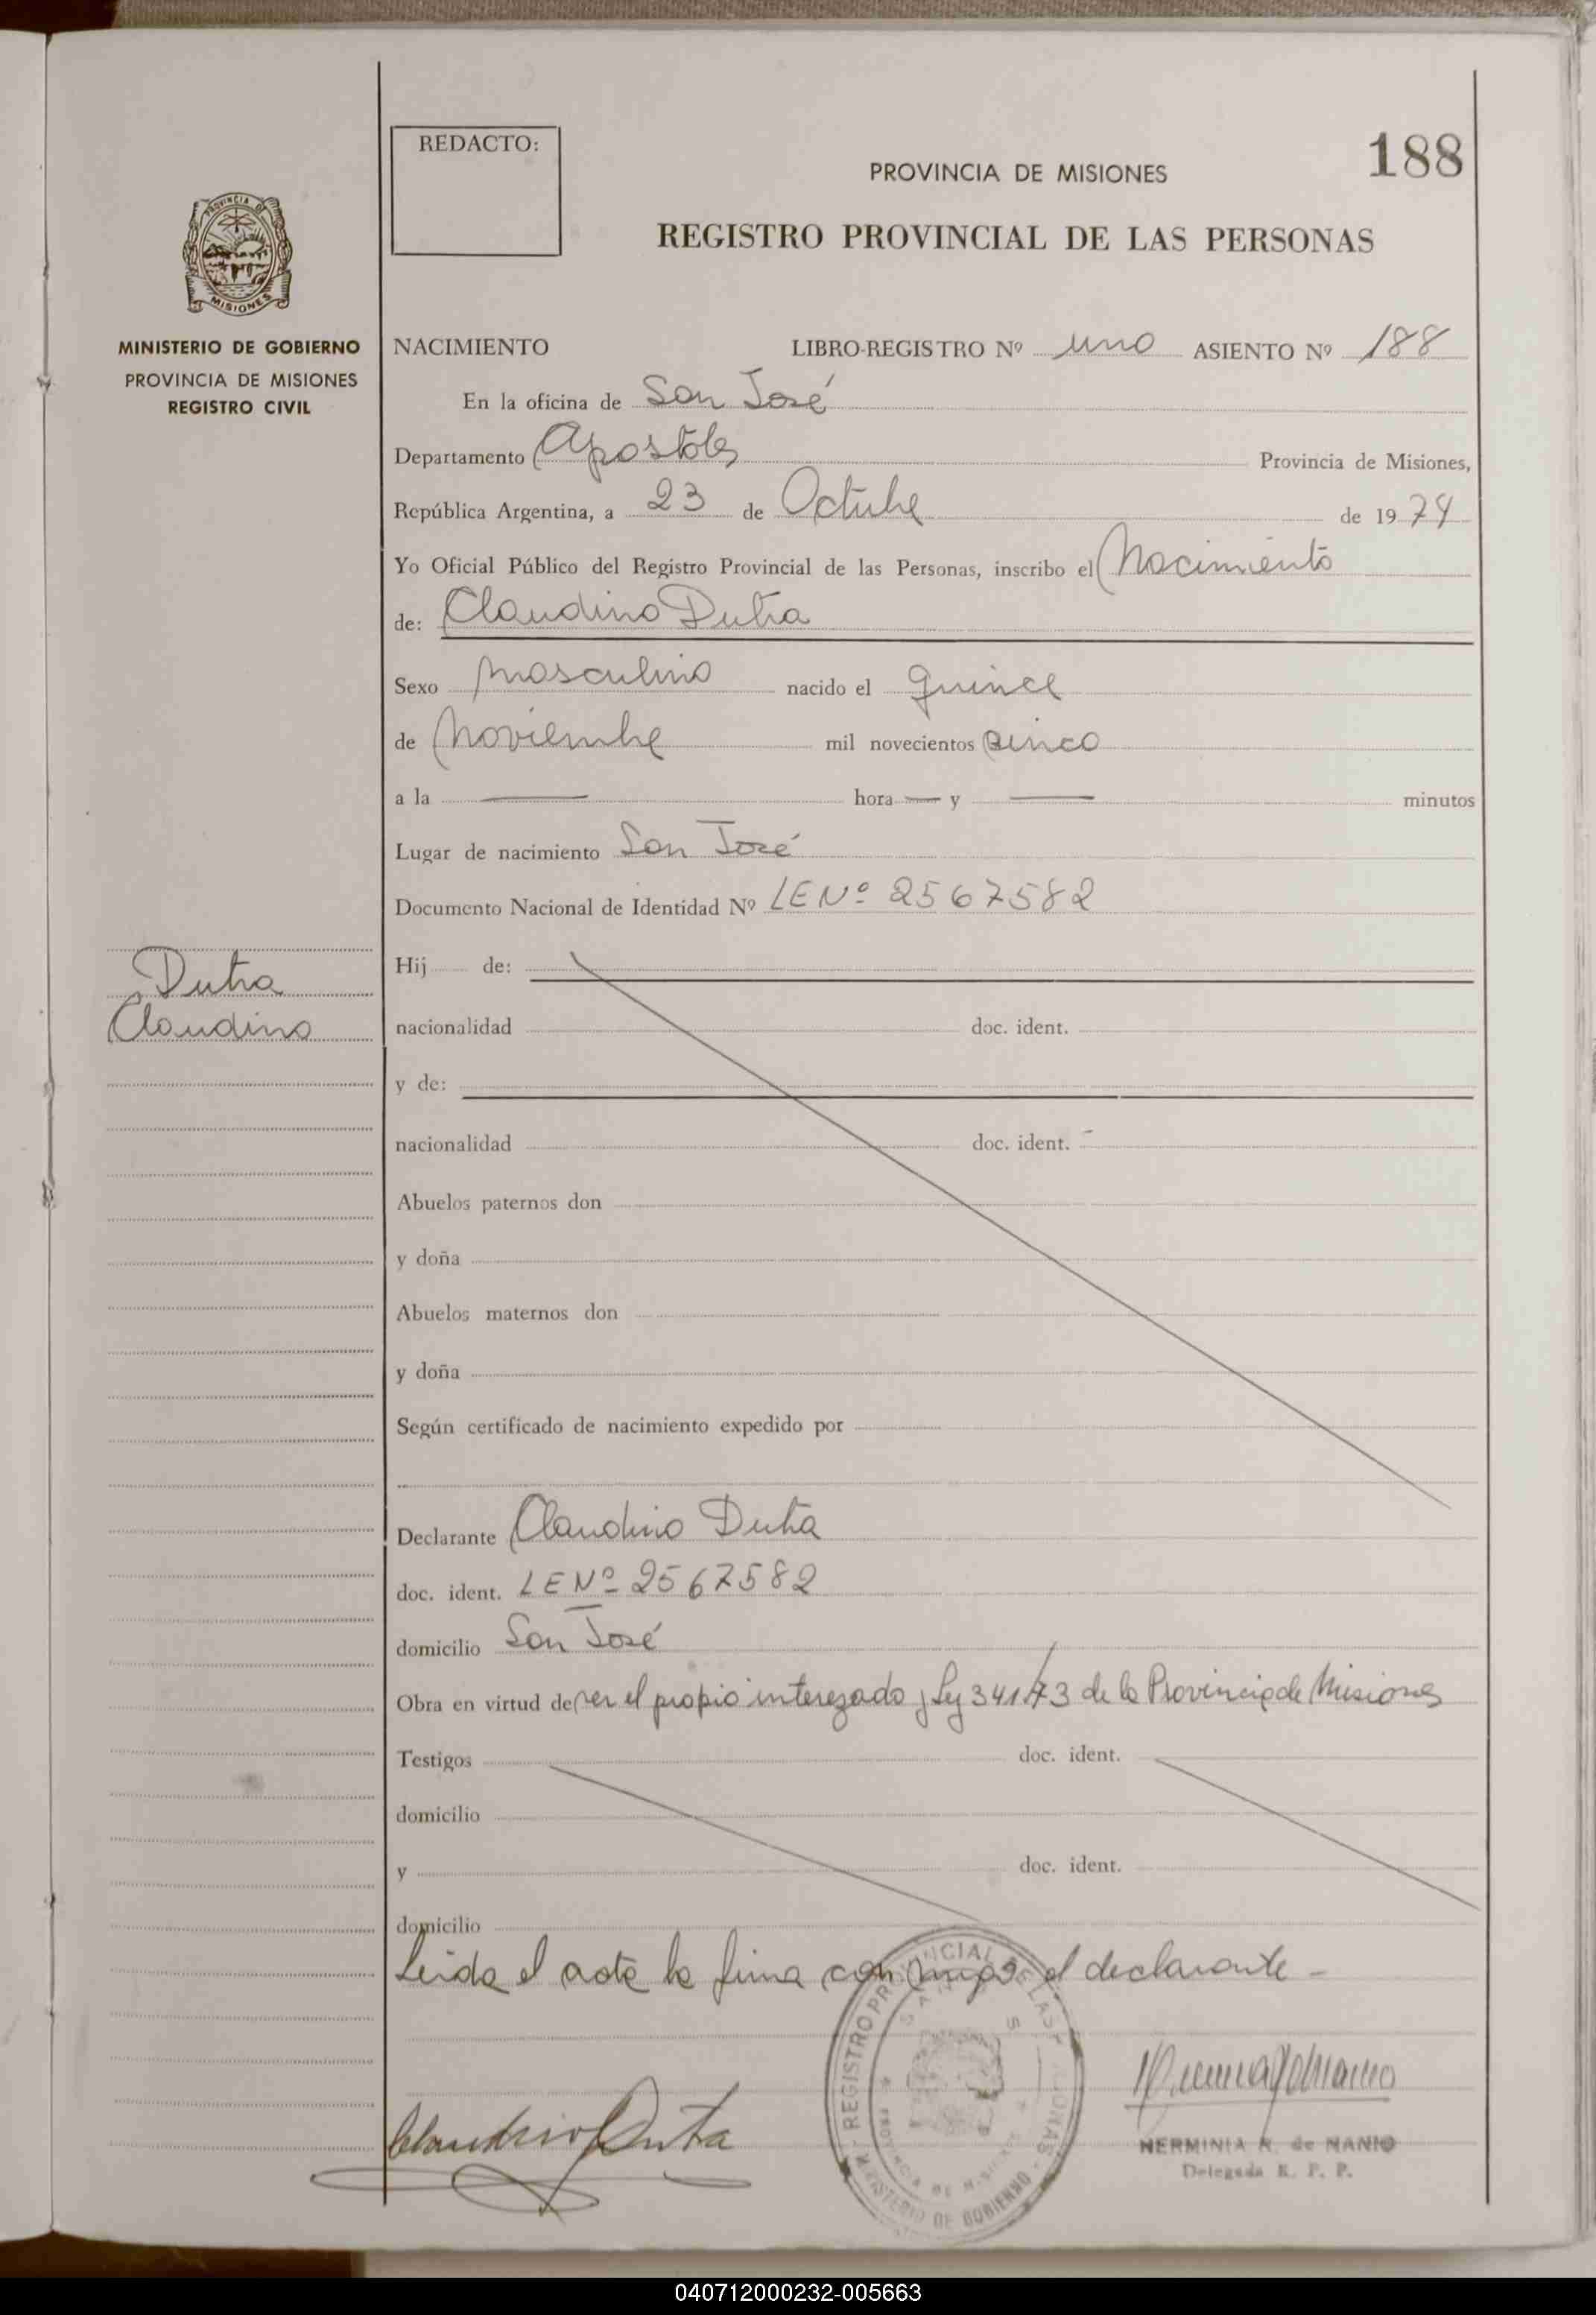 REDACTO:
188
PROVINCIA DE MISIONES
REGISTRO PROVINCIAL DE LAS PERSONAS
PROVINCIA DE
MISIONES
MINISTERIO DE GOBIERNO
PROVINCIA DE MISIONES
REGISTRO CIVIL
NACIMIENTO LIBRO-REGISTRO Nº uno ASIENTO Nº 188
En la oficina de San José
Departamento Apostoles Provincia de Misiones,
República Argentina, a 23 de Octubre de 1974
Yo Oficial Público del Registro Provincial de las Personas, inscribo el Nacimiento
de: Claudino Dutra
Sexo Masculino nacido el quince
de Noviembre mil novecientos cinco
a la hora y minutos
Lugar de nacimiento San José
Documento Nacional de Identidad Nº LE Nº 2567582
Dutra
Claudino
Hij de:
nacionalidad doc. ident.
y de:
nacionalidad doc. ident.
Abuelos paternos don
y doña
Abuelos maternos don
y doña
Según certificado de nacimiento expedido por
Declarante Claudino Dutra
doc. ident. LE Nº 2567582
domicilio San José
Obra en virtud de ser el propio interezado y Ley 341/73 de la Provincia de Misiones
Testigos doc. ident.
domicilio
y doc. ident.
domicilio
Leida el acta la firma conmigo el declarante -
Claudino Dutra
REGISTRO PROVINCIAL DE LAS PERSONAS
MINISTERIO DE GOBIERNO
PROVINCIA DE MISIONES
HERMINIA N. de NANIO
Delegada R. P. P.
040712000232-005663